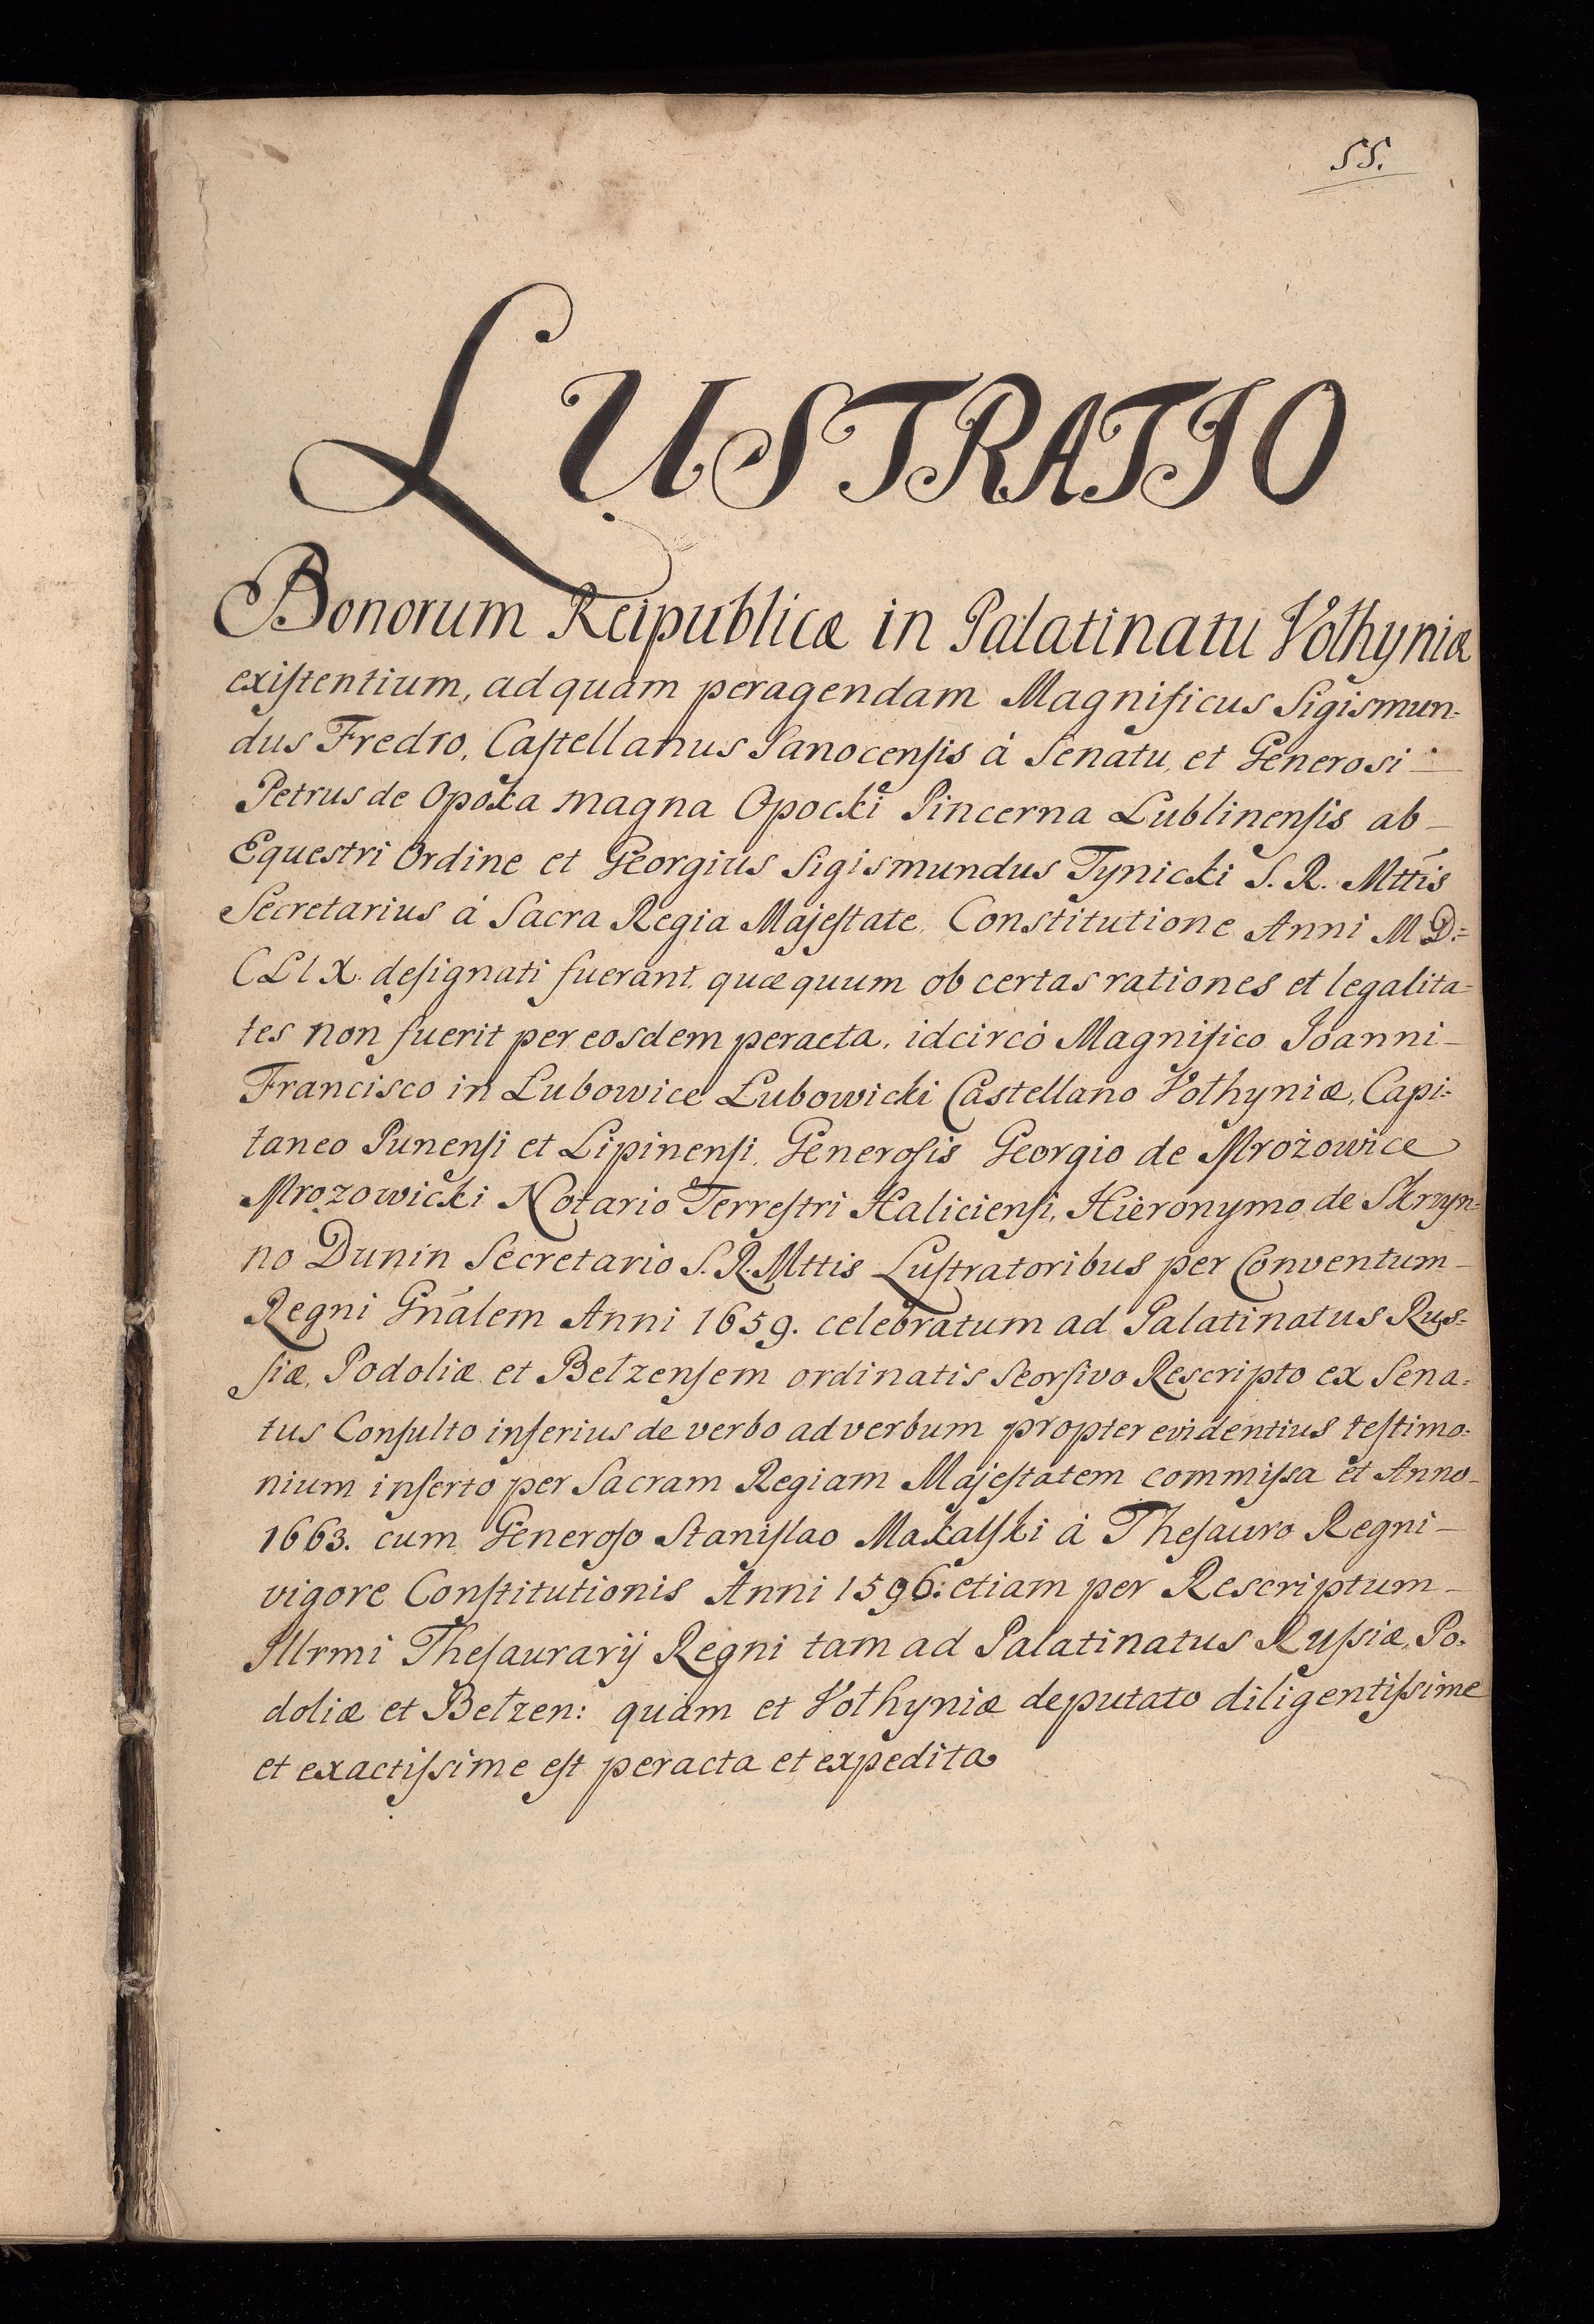 55.
LUSTRATIO
Bonorum Reipublicæ in Palatinatu Vołhyniæ
existentium, ad quam peragendam Magnificus Sigismun-
dus Fredro, Castellanus Sanocensis à Senatu, et Generosi —
Petrus de Opoka magna Opocki Pincerna Lublinensis ab —
Equestri Ordine et Georgius Sigismundus Tynicki S. R. Mttis
Secretarius à Sacra Regia Majestate, Constitutione Anni MD:=
CLIX. designati fuerant, quæ quum ob certas rationes et legalita=
tes non fuerit per eosdem peracta, idcircò Magnifico Joanni —
Francisco in Lubowice Lubowicki Castellano Vołhyniæ, Capi:
taneo Punensi et Lipinensi, Generosis Georgio de Mrozowice
Mrozowicki Notario Terrestri Haliciensi, Hieronymo de Skrzyn=
no Dunin Secretario S. R. Mttis Lustratoribus per Conventum —
Regni Gnálem Anni 1659. celebratum ad Palatinatus Rus-
siæ, Podoliæ et Bełzensem ordinatis Seorsivo Rescripto ex Sena:
tus Consulto inferius de verbo ad verbum propter evidentius testimo:
nium inserto per Sacram Regiam Majestatem commissa et Anno —
1663. cum Generoso Stanislao Makalski à Thesauro Regni —
vigore Constitutionis Anni 1596: etiam per Rescriptum —
Illrmi Thesaurarij Regni tam ad Palatinatus Russiæ, Po:
doliæ et Bełzen: quam et Vołhyniæ deputato diligentissime
et exactissime est peracta et expedita